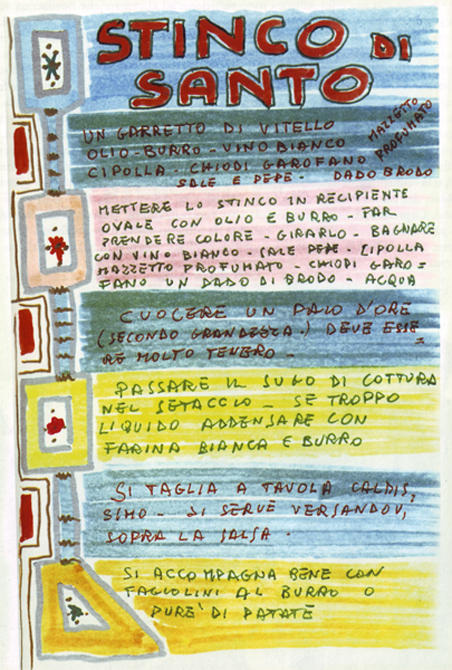 STINCO DI
SANTO
UN GARRETTO DI VITELLO
OLIO - BURRO - VINO BIANCO
CIPOLLA - CHIODI GAROFANO
SALE E PEPE - DADO BRODO
MAZZETTO
PROFUMATO
METTERE LO STINCO IN RECIPIENTE
OVALE CON OLIO E BURRO - FAR
PRENDERE COLORE - GIRARLO - BAGNARE
CON VINO BIANCO - SALE PEPE - CIPOLLA
MAZZETTO PROFUMATO - CHIODI GARO=
FANO UN DADO DI BRODO - ACQUA
CUOCERE UN PAIO D'ORE
(SECONDO GRANDEZZA.) DEVE ESSE
=
RE MOLTO TENERO -
PASSARE IL SUGO DI COTTURA
NEL SETACCIO - SE TROPPO
LIQUIDO ADDENSARE CON
FARINA BIANCA E BURRO
SI TAGLIA A TAVOLA CALDIS,
SIMO - SI SERVE VERSANDOV,
SOPRA LA SALSA .
SI ACCOMPAGNA BENE CON
FAGIOLINI AL BURRO O
PURE' DI PATATE